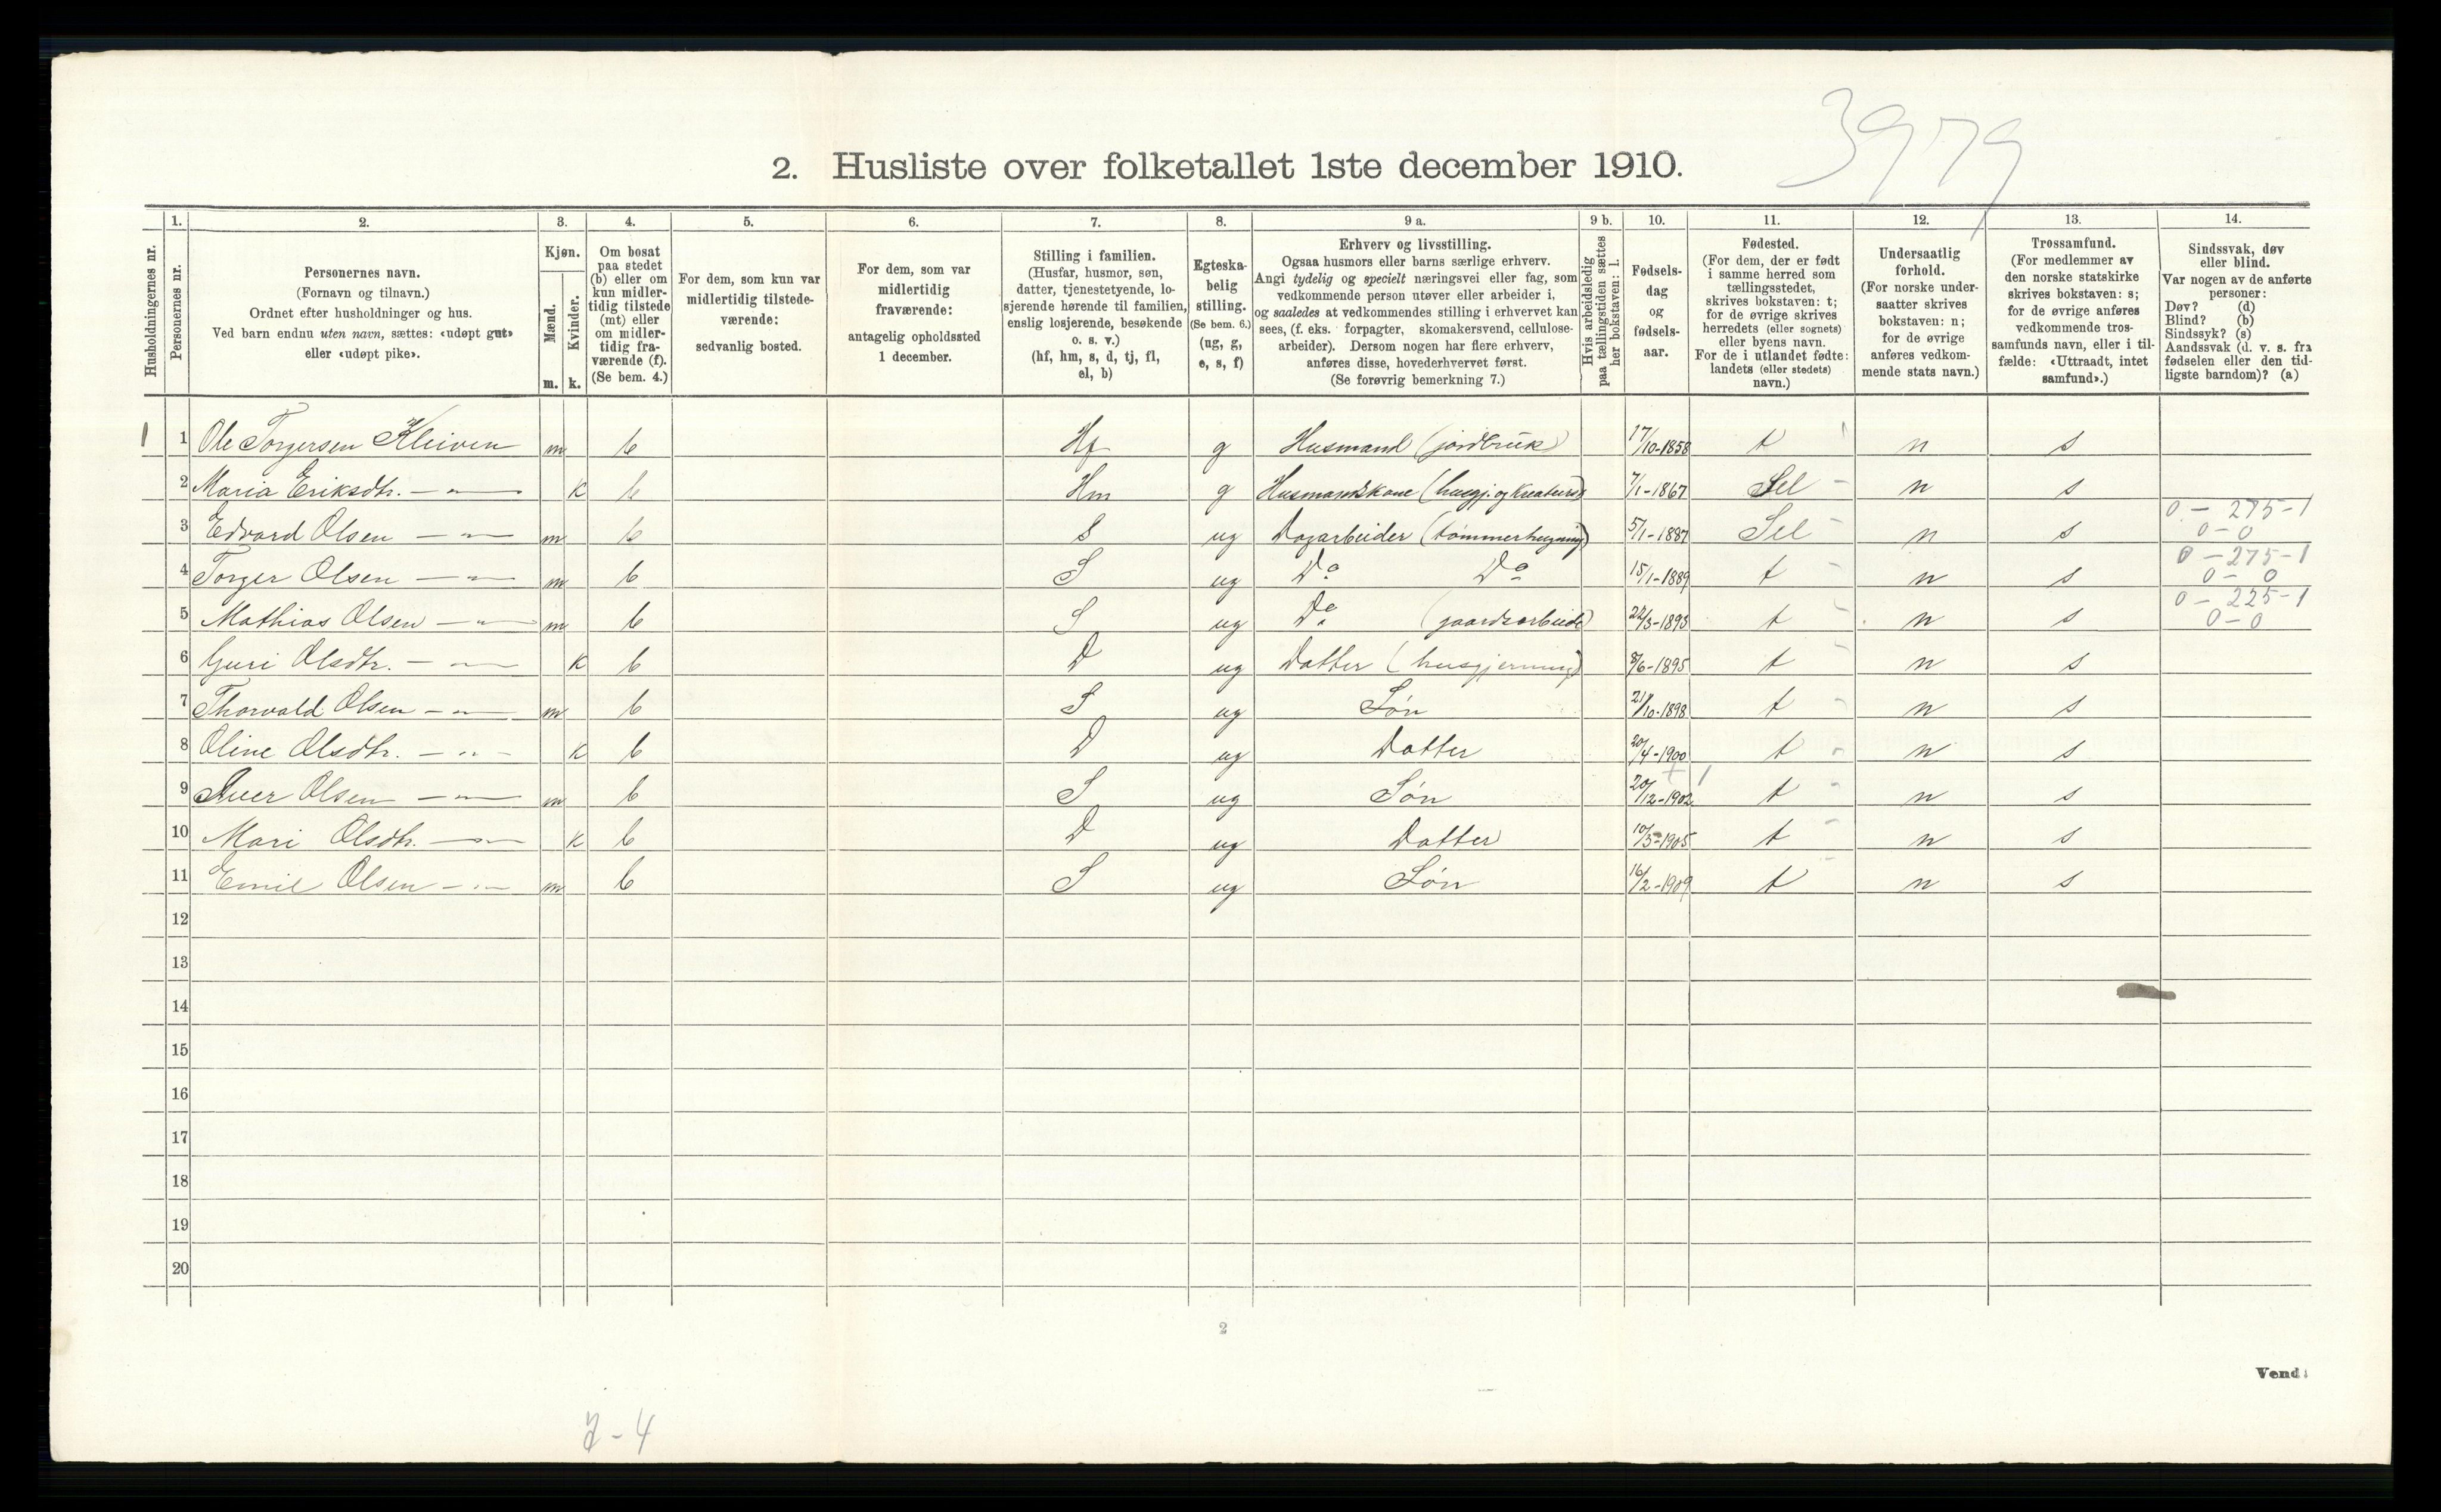 3979
2. Husliste over folketallet 1ste december 1910.
Husholdningernes nr.
1. Personernes nr.
2. Personernes navn. (Fornavn og tilnavn.) Ordnet efter husholdninger og hus. Ved barn endnu uten navn, sættes: «udøpt gut» eller «udøpt pike».
3. Kjøn. Mænd. m. Kvinder. k.
4. Om bosat paa stedet (b) eller om kun midler-tidig tilstede (mt) eller om midler-tidig fra-værende (f). (Se bem. 4.)
5. For dem, som kun var midlertidig tilstede-værende: sedvanlig bosted.
6. For dem, som var midlertidig fraværende: antagelig opholdssted 1 december.
7. Stilling i familien. (Husfar, husmor, søn, datter, tjenestetyende, lo-sjerende hørende til familien, enslig losjerende, besøkende o. s. v.) (hf, hm, s, d, tj, fl, el, b)
8. Egteska-belig stilling. (Se bem. 6.) (ug, g, e, s, f)
9 a. Erhverv og livsstilling. Ogsaa husmors eller barns særlige erhverv. Angi tydelig og specielt næringsvei eller fag, som vedkommende person utøver eller arbeider i, og saaledes at vedkommendes stilling i erhvervet kan sees, (f. eks. forpagter, skomakersvend, cellulose-arbeider). Dersom nogen har flere erhverv, anføres disse, hovederhvervet først. (Se forøvrig bemerkning 7.)
9 b. Hvis arbeidsledig paa tællingstiden sættes her bokstaven: l.
10. Fødsels-dag og fødsels-aar.
11. Fødested. (For dem, der er født i samme herred som tællingsstedet, skrives bokstaven: t; for de øvrige skrives herredets (eller sognets) eller byens navn. For de i utlandet fødte: landets (eller stedets) navn.)
12. Undersaatlig forhold. (For norske under-saatter skrives bokstaven: n; for de øvrige anføres vedkom-mende stats navn.)
13. Trossamfund. (For medlemmer av den norske statskirke skrives bokstaven: s; for de øvrige anføres vedkommende tros-samfunds navn, eller i til-fælde: «Uttraadt, intet samfund».)
14. Sindssvak, døv eller blind. Var nogen av de anførte personer: Døv? (d) Blind? (b) Sindssyk? (s) Aandssvak (d. v. s. fra fødselen eller den tid-ligste barndom)? (a)
1 1 Ole Torgersen Kleiven m b Hf g Husmand (jordbruk) 17/10-1858 t n s
2 Maria Eriksdtr. — „ — k b Hm g Husmandskone (husgj. og Kreaturst) 7/1-1867 Sel n s
3 Edvard Olsen — „ — m b S ug Dagarbeider (tømmerhugning) 5/1-1887 Sel n s 0 - 275-1 0-0
4 Torger Olsen — „ — m b S ug Do Do 15/1-1889 t n s 0 - 275-1 0-0
5 Mathias Olsen — „ — m b S ug Do (gaardsarbeide) 22/3-1893 t n s 0 - 225-1 0-0
6 Guri Olsdtr. — „ — k b D ug Datter (husgjerning) 8/6-1895 t n s
7 Thorvald Olsen — „ — m b S ug Søn 21/10-1898 t n s
8 Oline Olsdtr. — „ — k b D ug Datter 20/4-1900 t n s
9 Iver Olsen — „ — m b S ug Søn 20/12-1902 t n s
10 Mari Olsdtr. — „ — k b D ug Datter 10/5-1905 t n s
11 Emil Olsen — „ — m b S ug Søn 16/2-1909 t n s
12
13
14
15
16
17
18
19
20
2
Vend!
7-4